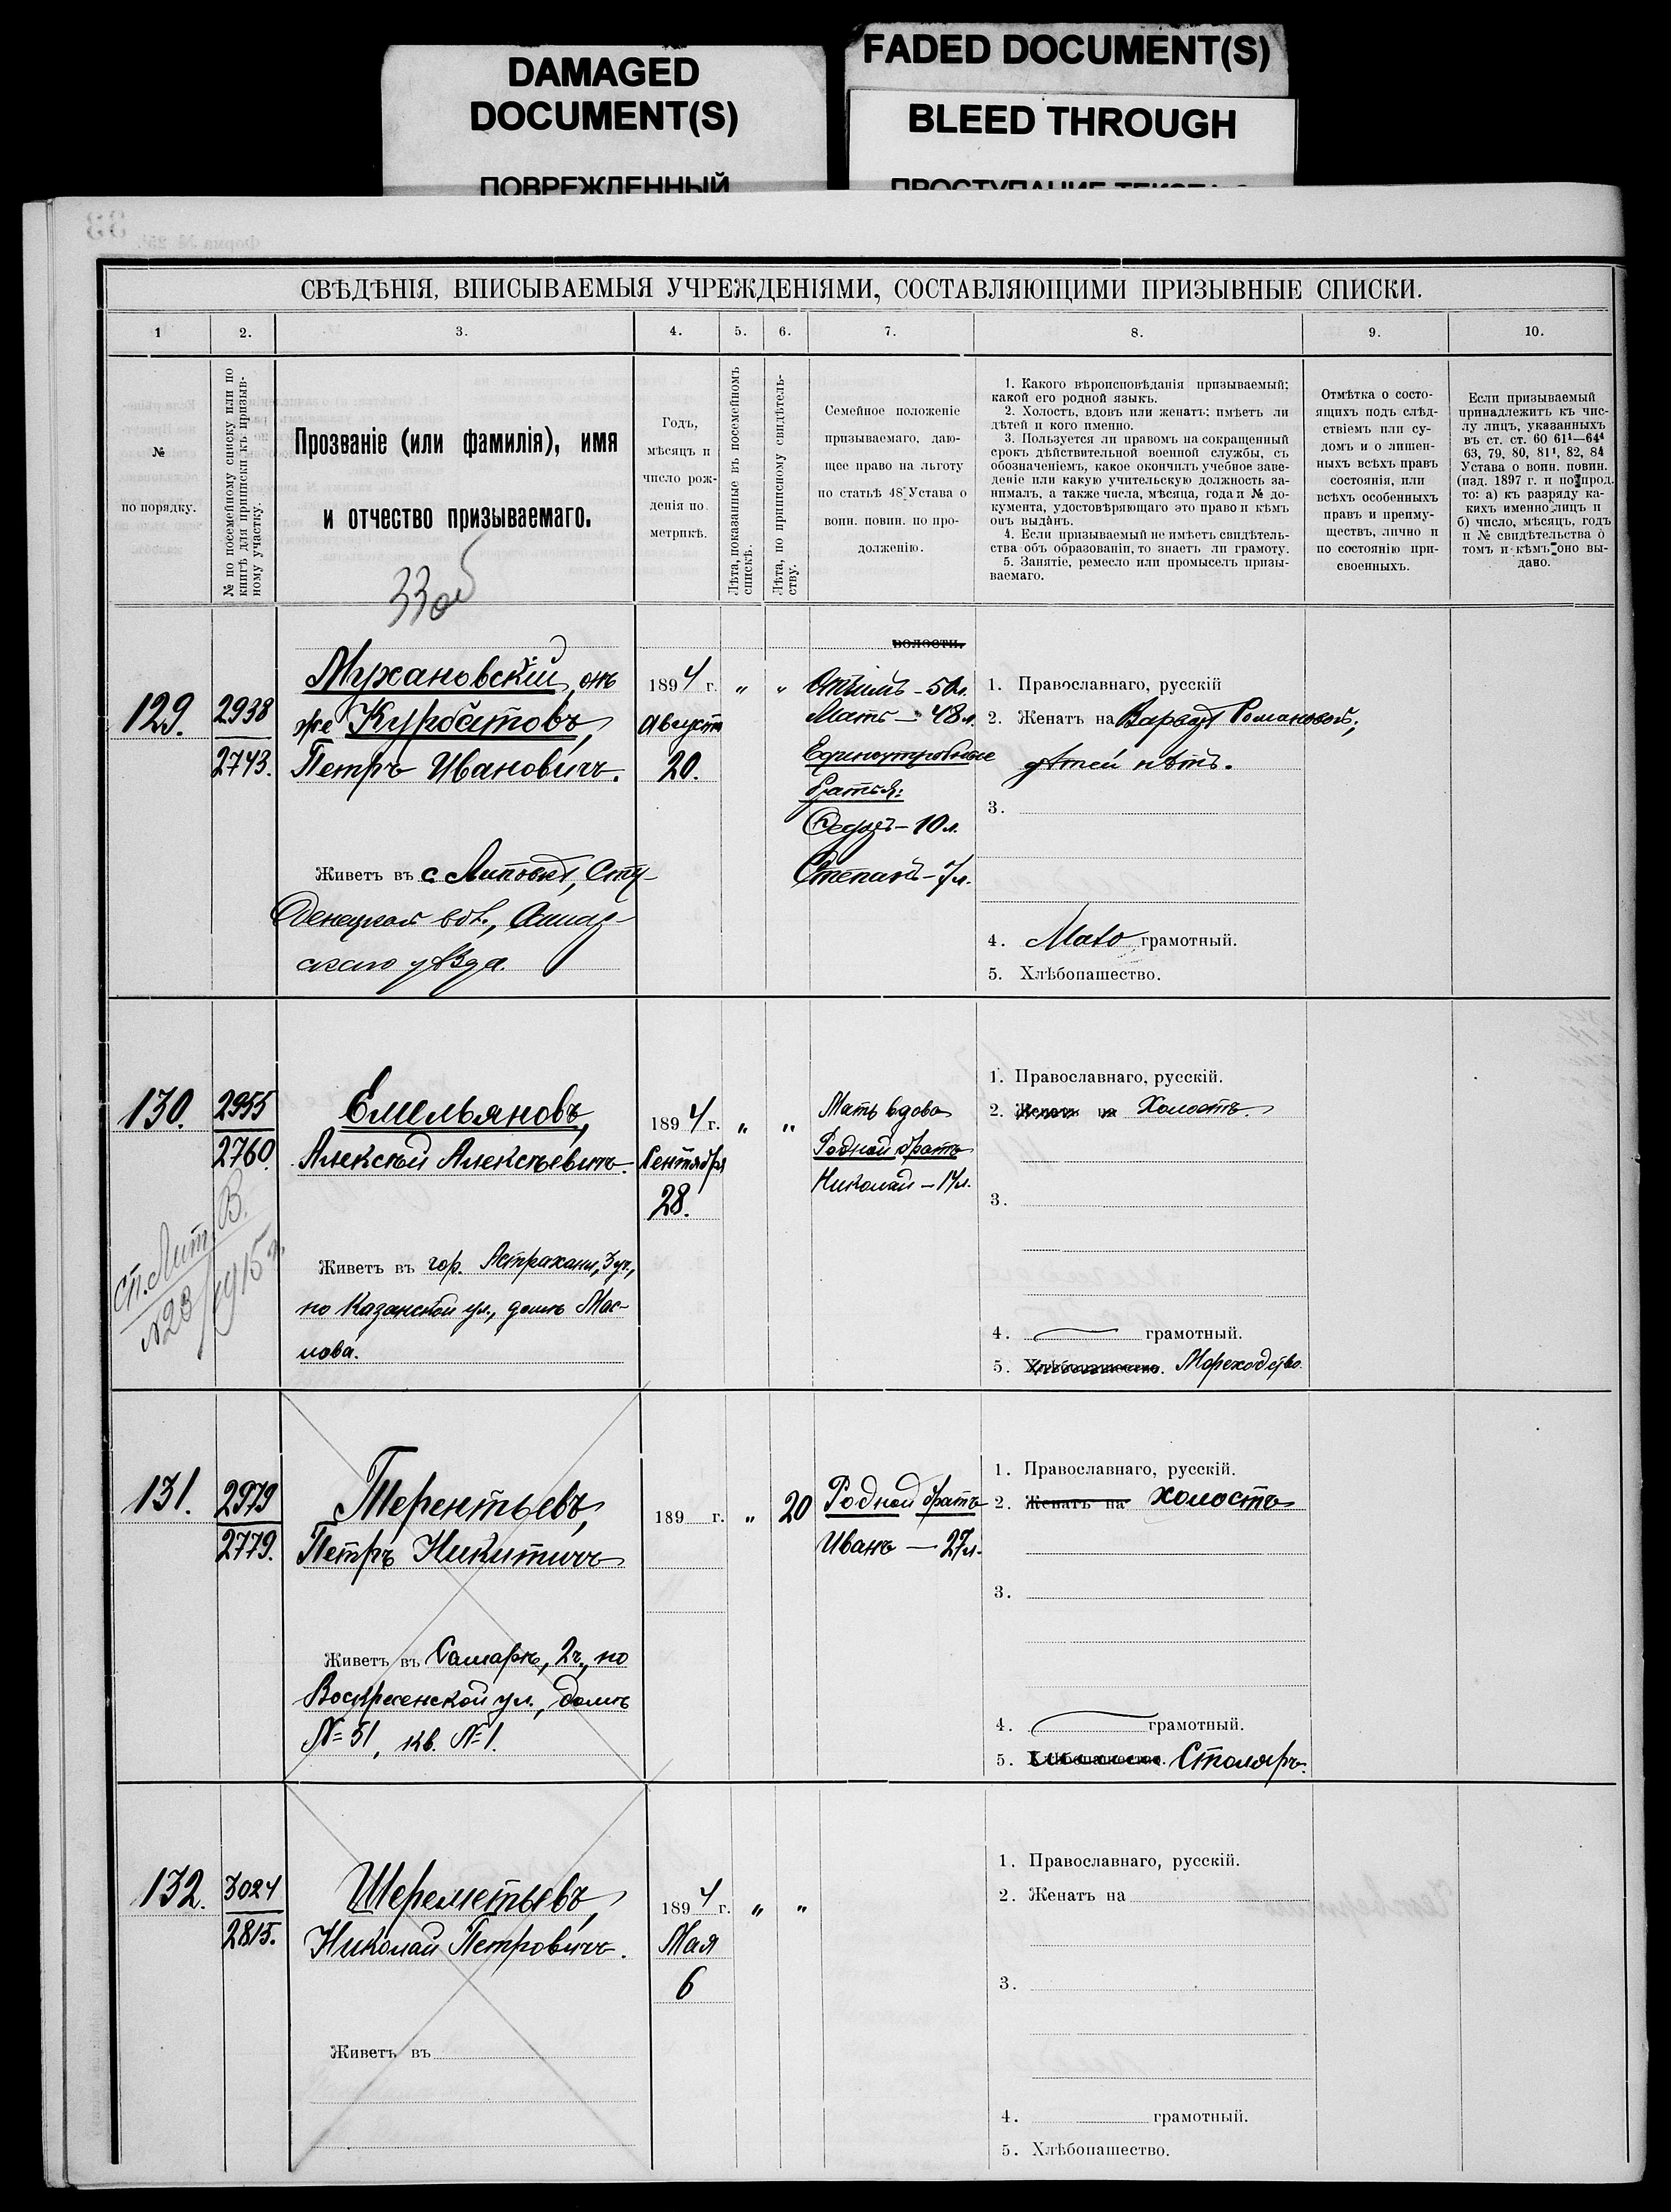 DAMAGED
DOCUMENT(S)
ПОВРЕЖДЕННЫЙ
FADED DOCUMENT(S)
BLEED THROUGH
СВѢДѢНІЯ, ВПИСЫВАЕМЫЯ УЧРЕЖДЕНІЯМИ, СОСТАВЛЯЮЩИМИ ПРИЗЫВНЫЕ СПИСКИ.
1 2. 3. 4. 5. 6. 7. 8. 9. 10.
№
по порядку.
№ по посемейному списку или по
книгѣ для приписки къ призыв-
ному участку.
Прозваніе (или фамилія), имя
и отчество призываемаго.
33об
Годъ,
мѣсяцъ и
число рож-
денія по
метрикѣ.
Лѣта, показанные въ посемейномъ
спискѣ.
Лѣта, по приписному свидѣтель-
ству.
Семейное положеніе
призываемаго, даю-
щее право на льготу
по статьѣ 48 Устава о
воин. повин. по про-
долженію.
1. Какого вѣроисповѣданія призываемый;
какой его родной языкъ.
2. Холостъ, вдовъ или женатъ; имѣетъ ли
дѣтей и кого именно.
3. Пользуется ли правомъ на сокращенный
срокъ дѣйствительной военной службы, съ
обозначеніемъ, какое окончилъ учебное заве-
деніе или какую учительскую должность за-
нималъ, а также числа, мѣсяца, года и № до-
кумента, удостовѣряющаго это право и кѣмъ
онъ выданъ.
4. Если призываемый не имѣетъ свидѣтель-
ства объ образованіи, то знаетъ ли грамоту.
5. Занятіе, ремесло или промыселъ призы-
ваемаго.
Отмѣтка о состо-
ящихъ подъ слѣд-
ствіемъ или су-
домъ и о лишен-
ныхъ всѣхъ правъ
состоянія, или
всѣхъ особенныхъ
правъ и преиму-
ществъ, лично и
по состоянію при-
своенныхъ.
Если призываемый
принадлежитъ къ чис-
лу лицъ, указанныхъ
въ ст. ст. 60 61¹—64⁴
63, 79, 80, 81¹, 82, 84
Устава о воин. повин.
(изд. 1897 г. и по прод.
то: а) къ разряду ка-
кихъ именно лицъ и
б) число, мѣсяцъ, годъ
и № свидѣтельства о
томъ и кѣмъ оно вы-
дано.
129.
2938
2743.
Мухановскій, онъ
же Курбатовъ,
Петръ Ивановичъ.
Живетъ въ с. Липовкѣ, Сту-
денецкой вол., Самар-
скаго уѣзда.
1894 г.
Августа
20.
" "
волости.
Отчимъ – 50 л.
Мать – 48 л.
Единоутробные
братья:
Федоръ – 10 л.
Степанъ – 7 л.
1. Православнаго, русскій
2. Женатъ на Варварѣ Романовой;
дѣтей нѣтъ.
3.
4. Мало грамотный.
5. Хлѣбопашество.
130.
2955
2760
сп. Лит. В.
№ 28/1915 г.
Емельяновъ,
Алексѣй Алексѣевичъ.
Живетъ въ гор. Астрахани, 3 уч.,
по Казанской ул., домъ Мас-
лова.
1894 г.
Сентября
28.
" "
Мать вдова
Родной братъ
Николай – 14 л.
1. Православнаго, русскій.
2. Женатъ на Холостъ.
3.
4. грамотный.
5. Хлѣбопашество. Мореходство.
131.
2979
2779.
Терентьевъ,
Петръ Никитичъ
Живетъ въ Самарѣ, 2 ч., по
Воскресенской ул., домъ
№ 51, кв. № 1.
189 г.
" 20
Родной братъ
Иванъ — 27 л.
1. Православнаго, русскій.
2. Женатъ на холостъ
3.
4. грамотный.
5. Хлѣбопашество. Столяръ.
132.
3024
2815.
Шереметьевъ,
Николай Петровичъ.
Живетъ въ
1894 г.
Мая
6
" "
1. Православнаго, русскій.
2. Женатъ на
3.
4. грамотный.
5. Хлѣбопашество.